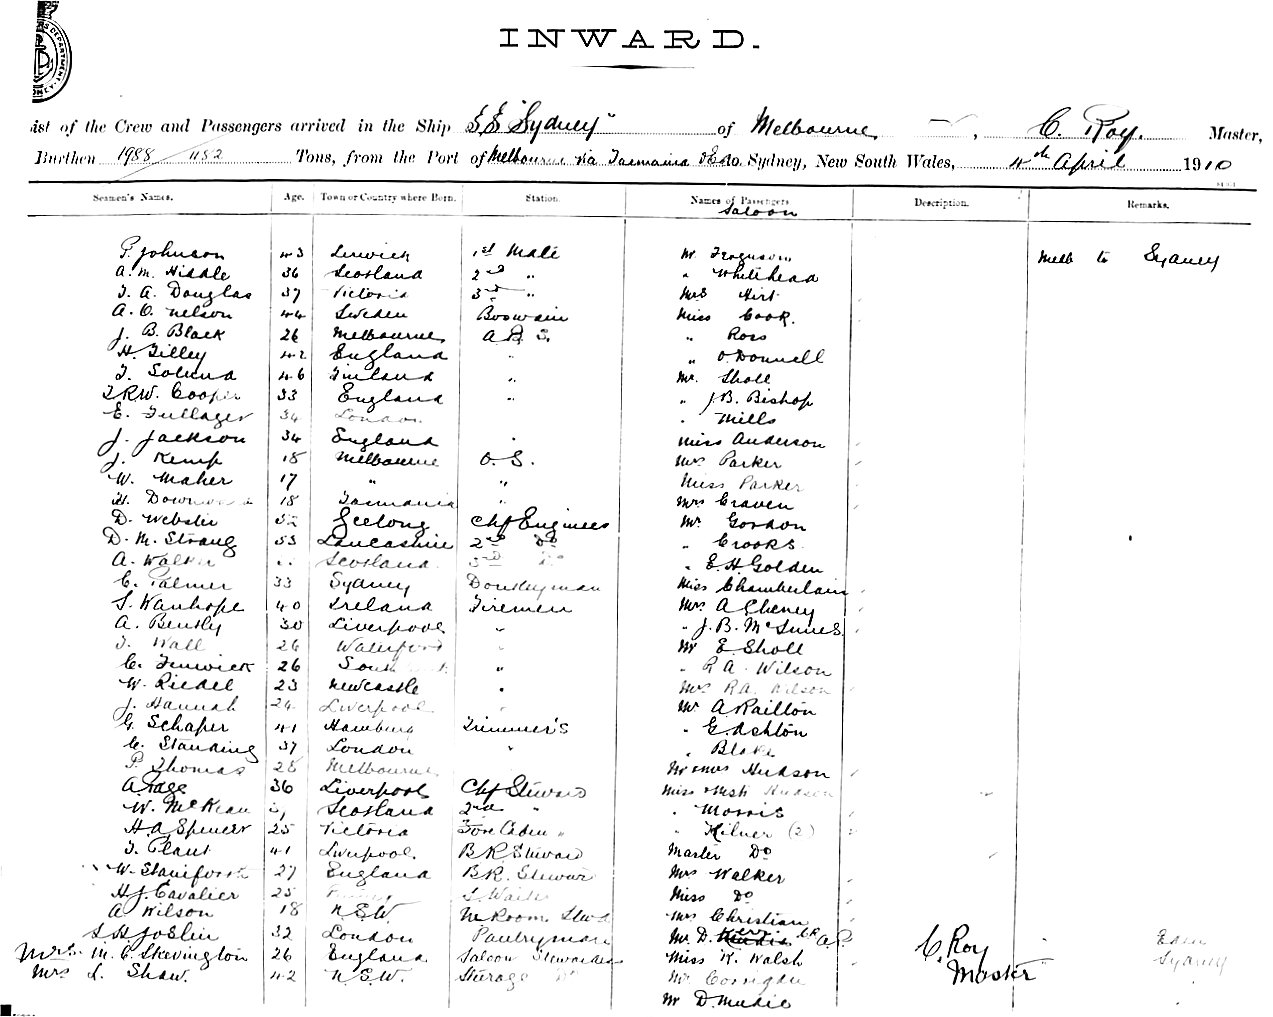 INWARD.
ist of the Crew and Passengers arrived in the Ship S.S. "Sydney" of Melbourne, C. Roy. Master,
Burthen 1988/1182 Tons, from the Port of Melbourne via Tasmania & Eden to Sydney, New South Wales, 4th April 1910
Seamen's Names. Age. Town or Country where Born. Station. Names of Passengers Description. Remarks.
Saloon
P. Johnson 43 Lerwick 1st Mate Mr Ferguson Melb to Sydney
A. M. Hiddle 36 Scotland 2nd " " Whitehead
J. A. Douglas 37 Victoria 3rd " Mrs Hirt
A. O. Nelson 44 Sweden Boswain Miss Cook.
J. B. Black 26 Melbourne A B S " Ross
H. Tilley 42 England " " O'Donnell
46 Finland " Mr. Sholl
T.R.W. Cooper 33 England " " J.B. Bishop
E. Fullager 34 London " Mills
J. Jackson 34 England " Miss Anderson
J. Kemp 18 Melbourne O.S. Mr Parker
W. Maher 17 " " Miss Parker
H. 18 Tasmania " Mrs Craven
D. Webster 52 Geelong Chf Engineer Mr Gordon
D. M. Strang 53 Lancashire 2nd Do " Crooks
A. Walker Scotland 3rd Do " E. H. Golden
C. Palmer 33 Sydney Donkeyman Miss Chamberlain
S. Wanhope 40 Ireland Firemen Mrs A Cheney
A. Bently 30 Liverpool " " J. B. McInnes
J. Wall 26 Waterford " Mr E. Sholl
C. Fenwick 26 " " R A Wilson
W. Riedel 23 Newcastle " Mrs R.A. Wilson
J. Hannah 24 Liverpool " Mr A Raillon
G. Schaper 41 Hamburg Trimmer's " G. Ashton
C. Standing 37 London " " Blake
P. Thomas 28 Melbourne Mr & Mrs Hudson
A Page 36 Liverpool Chf Steward Miss & Mstr Hudson
W. McKean Scotland 2nd " " Morris
H. A. Spencer 25 Victoria Fore Cabin " " Hilner (2)
J. Plant 41 Liverpool. B R Steward Master Do
W. Staniforth 27 England B.R. Steward Mrs Walker
H. J. Cavalier 25 S Waiter Miss Do
A Wilson 18 N.S.W. M Room Stwd Mrs Christian
S H Joslin 32 London Pantryman Mr. D. C. Roy Eden
Mrs. M. C. Skevington 26 England Saloon Stewardess Miss K. Walsh Master Sydney
Mrs L. Shaw. 42 N.S.W. Sterage Do Mr Corrigan
Mr D. Mudie